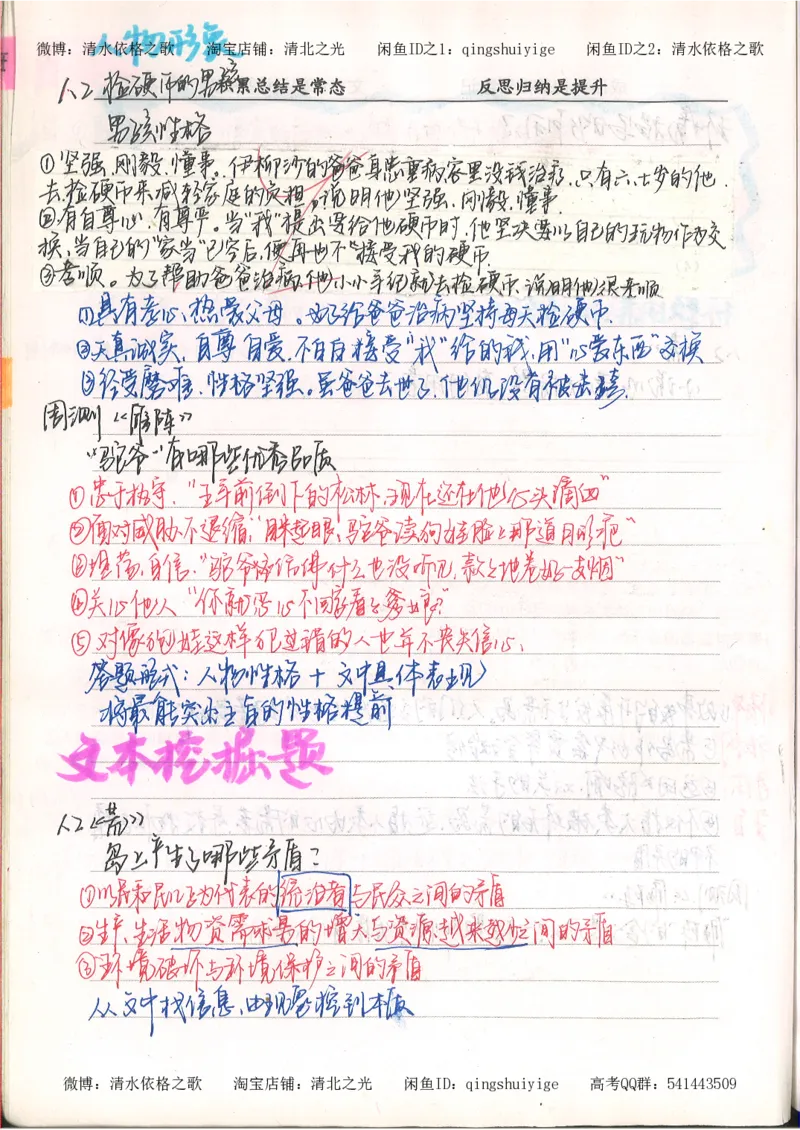 微博：清水依格之歌 淘宝店铺：清北之光 闲鱼ID之1：qingshuiyige 闲鱼ID之2：清水依格之歌
人物形象
人2 捡硬币的男孩
积累总结是常态 反思归纳是提升
男孩性格
①坚强,刚毅,懂事。伊柳沙的爸爸身患重病,家里没钱治疗,只有六、七岁的他
去捡硬币来减轻家庭的负担。说明他坚强,刚毅,懂事
②有自尊心,有尊严。当"我"提出要给他硬币时,他坚决要以自己的玩物作为交
换,当自己的"家当"已空后,便再也不接受我的硬币.
③孝顺。为了帮助爸爸治病,他小小年纪就去捡硬币.说明他很孝顺
①具有孝心,热爱父母。为了给爸爸治病坚持每天捡硬币.
②天真诚实,自尊自爱,不白白接受"我"给的钱,用"心爱东西"交换
③经受磨难,性格坚强。虽爸爸去世了,他仍没有被击垮.
周测《雁阵》
"驼爷"有哪些优秀品质
①忠于职守,"王军前倒下的松林,现在还在他心头滴血"
②面对威胁不退缩,"眯起眼,驼爷读狗娃脸上那道月形疤"
③坦荡,自信,"驼爷将信佛什么也没听见,款款地卷好一支烟"
④关心他人"你就忍心不回家看看爹娘?"
⑤对像狗娃这样犯过错的人也并不丧失信心.
答题形式：人物性格＋文中具体表现
将最能突出主旨的性格提前
文本挖掘题
人2《荒》
岛上产生了哪些矛盾？
①以 为代表的统治者与民众之间的矛盾
②生产、生活物资需求量的增大与资源越来越少之间的矛盾
③环境破坏与环境保护之间的矛盾
从文中找信息,由现象挖到本质
微博：清水依格之歌 淘宝店铺：清北之光 闲鱼ID：qingshuiyige 高考QQ群：541443509